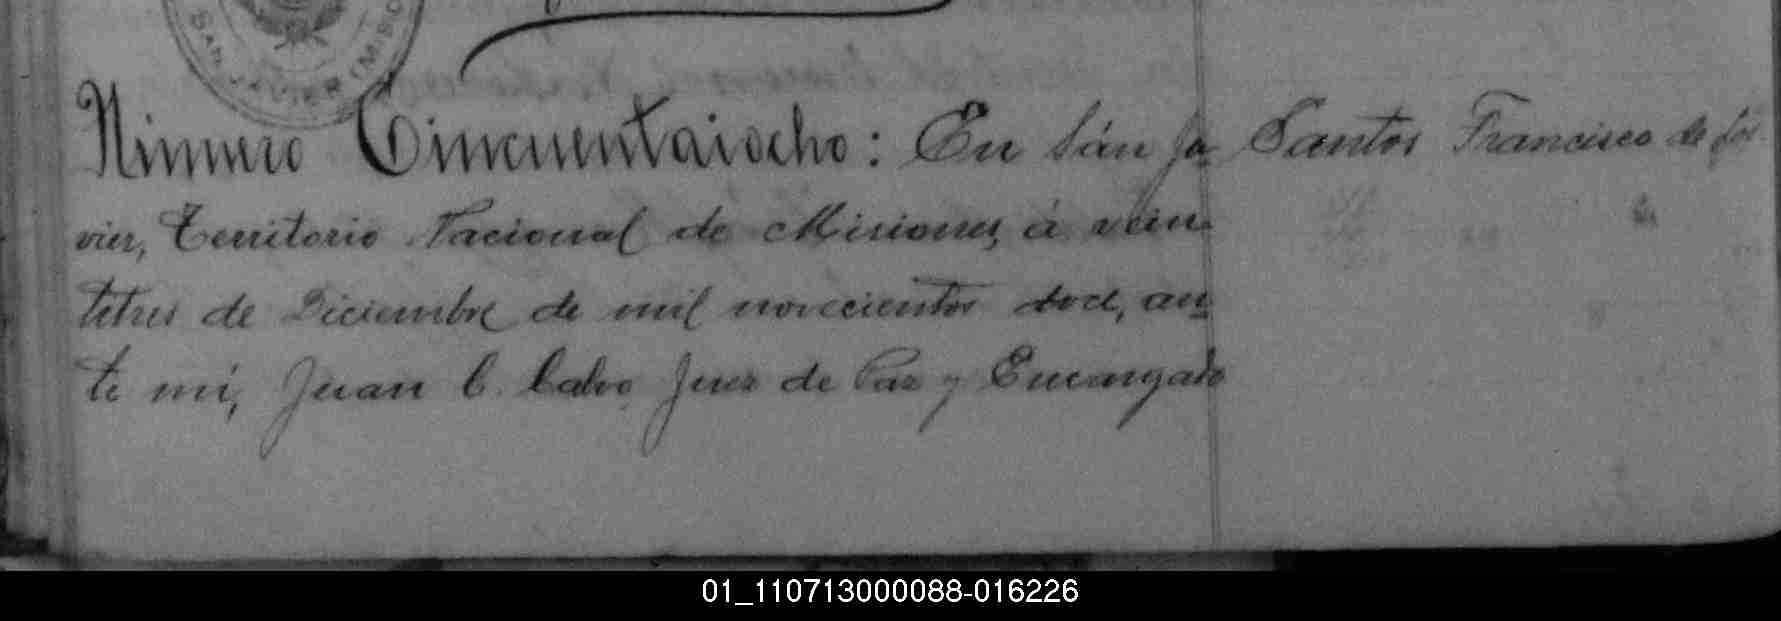 SAN JAVIER (MISIO
Número Cincuentaiocho: En Sán Ja- Santos Francisco de los
vier, Territorio Nacional de Misiones, á vein-
titres de Diciembre de mil novecientos doce, an-
te mi, Juan C. Calvo Juez de Paz y Encargado
01_110713000088-016226